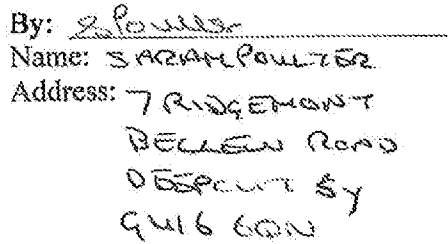 By: S Poulter
Name: SARAH POULTER
Address: 7 RIDGEMONT
BELLEW ROAD
DEEPCUT SY
GU16 6QN